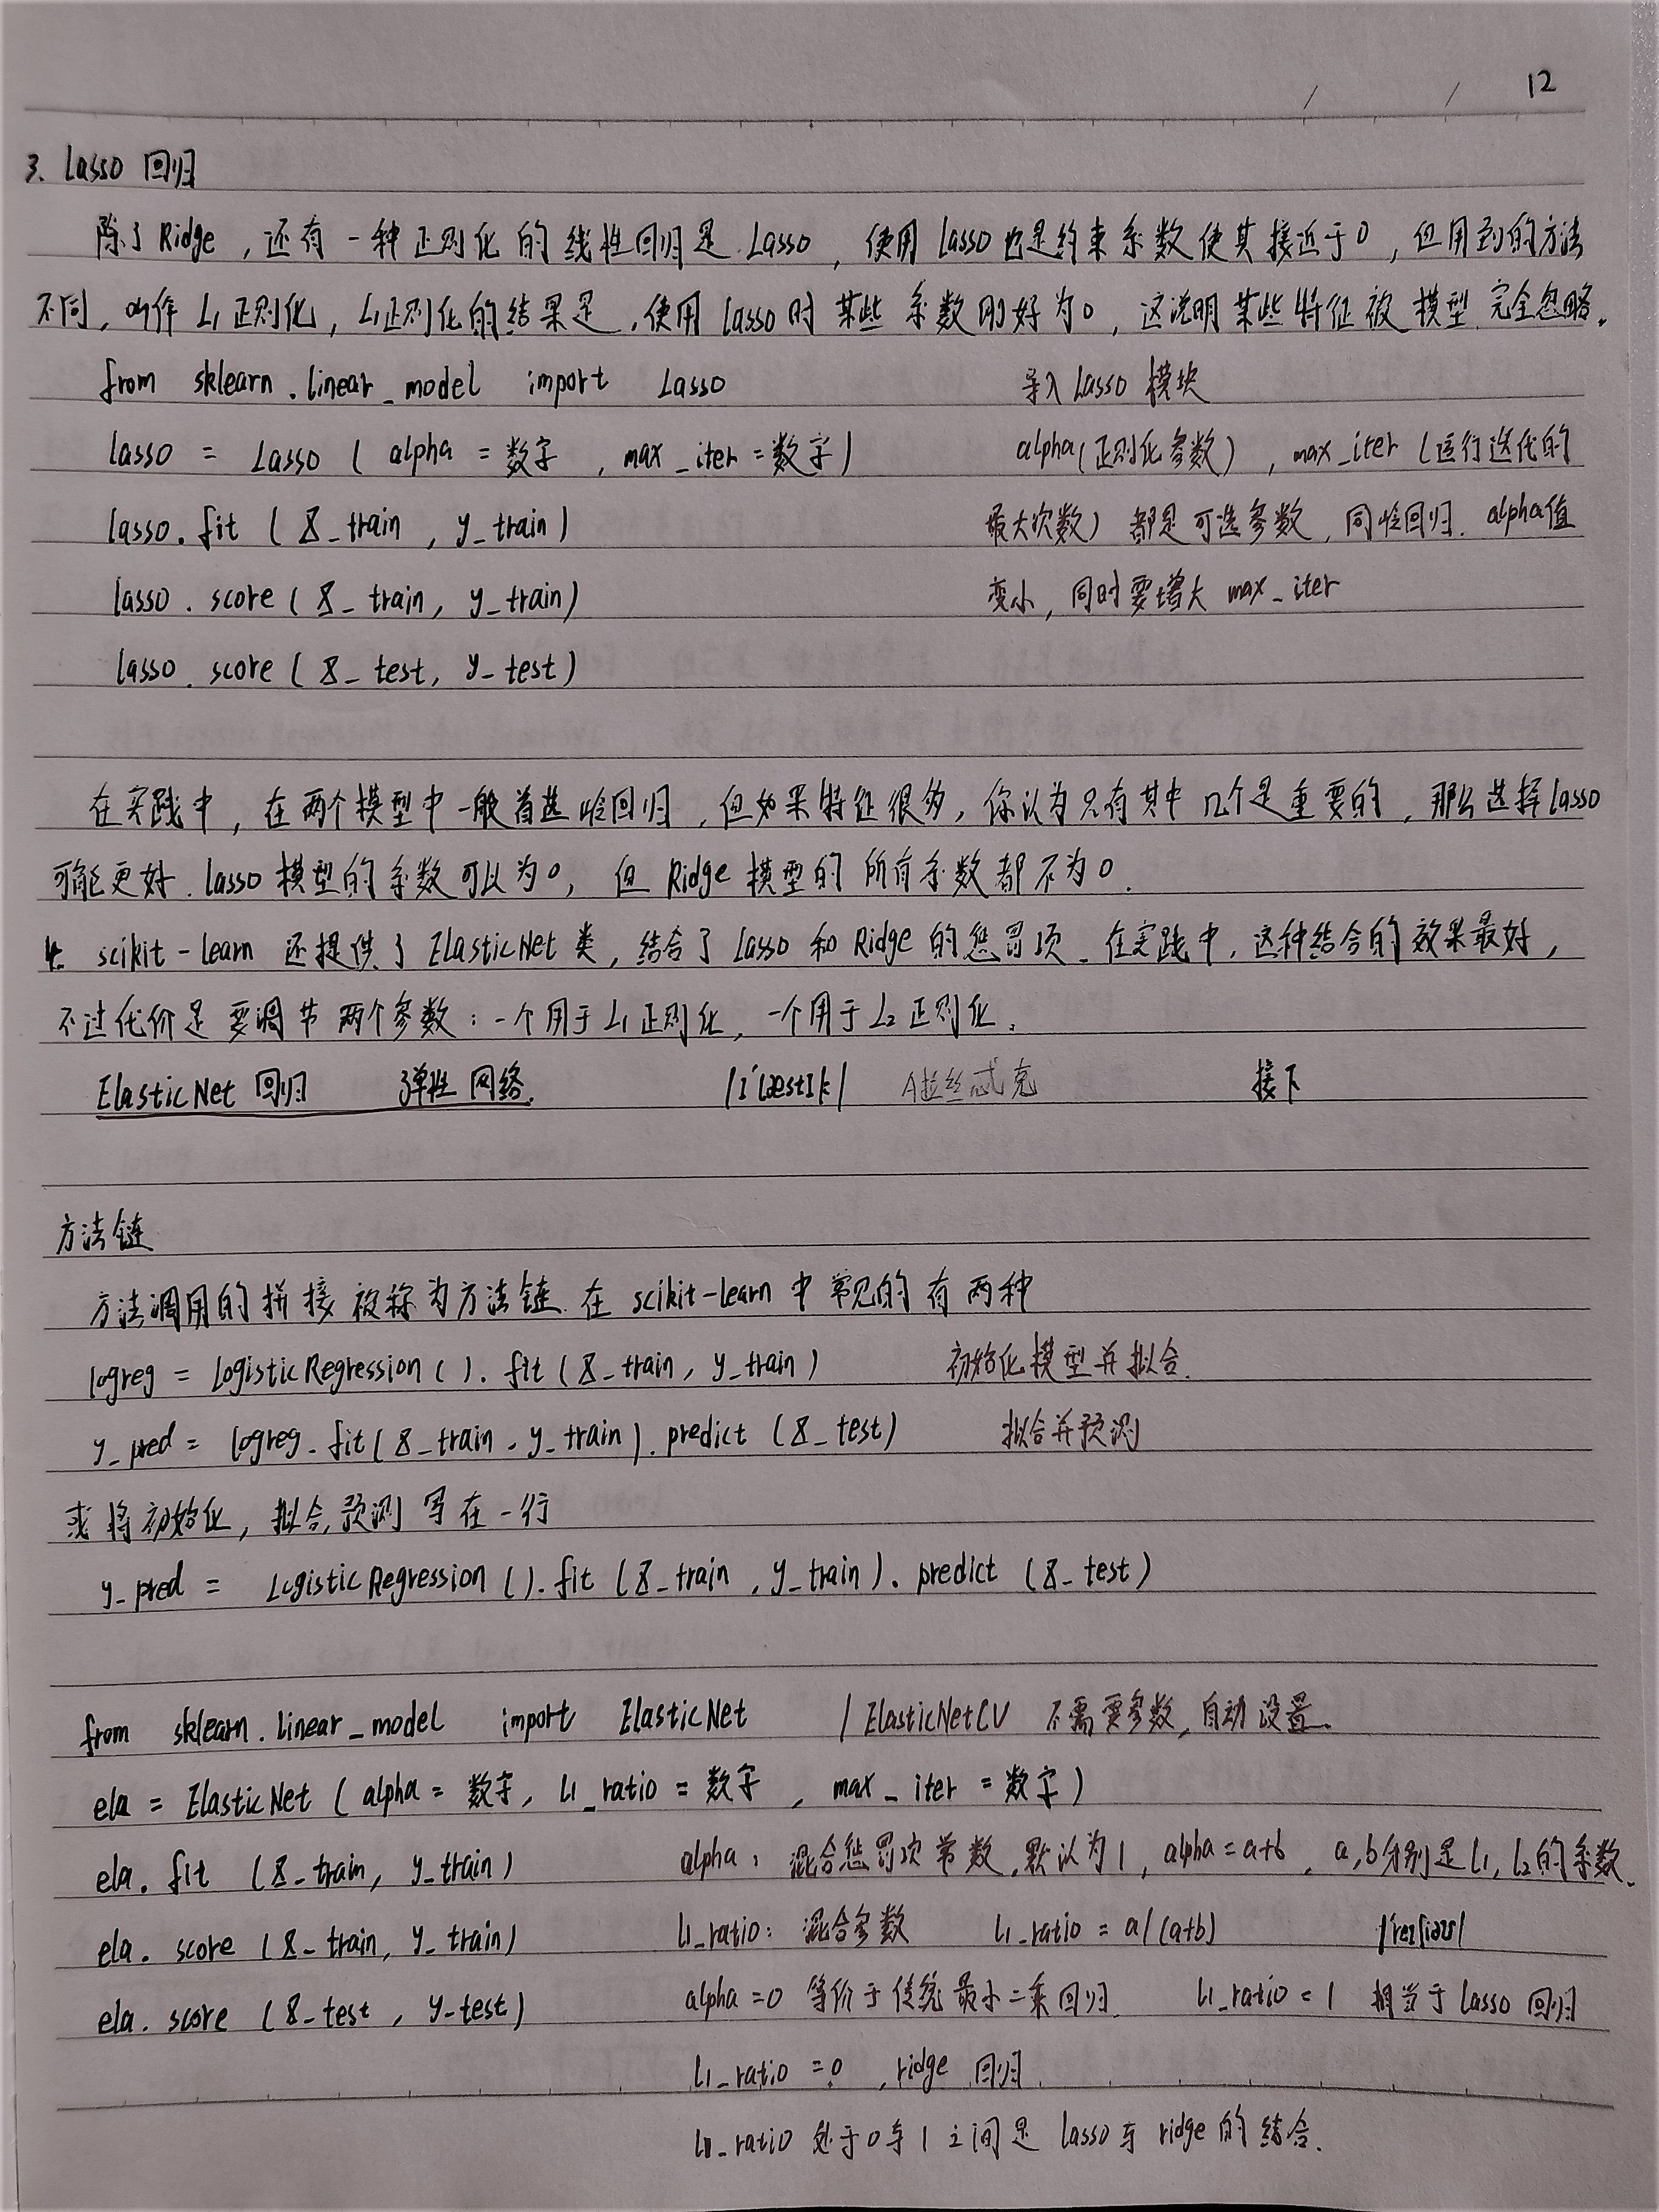 12
3. Lasso 回归
除了Ridge，还有一种正则化的线性回归是Lasso，使用lasso也是约束系数使其接近于0，但用到的方法
不同，叫作L1正则化，L1正则化的结果是，使用lasso时某些系数刚好为0，这说明某些特征被模型完全忽略。
from sklearn.linear_model import Lasso 导入Lasso模块
lasso = Lasso ( alpha = 数字 , max_iter = 数字 ) alpha(正则化参数) , max_iter (运行迭代的
lasso. fit ( X_train , y_train ) 最大次数) 都是可选参数，同岭回归. alpha值
lasso. score ( X_train, y_train) 变小，同时要增大 max_iter
lasso. score ( X_test, y_test)
在实践中，在两个模型中一般首选岭回归，但如果特征很多，你认为只有其中几个是重要的，那么选择lasso
可能更好. lasso模型的系数可以为0，但Ridge模型的所有系数都不为0.
4. scikit-learn 还提供了ElasticNet类，结合了Lasso和Ridge的惩罚项. 在实践中，这种结合的效果最好，
不过代价是要调节两个参数：一个用于L1正则化，一个用于L2正则化.
ElasticNet 回归 弹性网络. /ɪˈlæstɪk/ 接下
方法链
方法调用的拼接被称为方法链. 在scikit-learn中常见的有两种
logreg = LogisticRegression ( ). fit ( X_train, y_train ) 初始化模型并拟合.
y_pred = logreg. fit ( X_train, y_train ). predict ( X_test ) 拟合并预测
或将初始化，拟合，预测写在一行
y_pred = LogisticRegression ( ). fit ( X_train , y_train ). predict ( X_test )
from sklearn.linear_model import ElasticNet / ElasticNetCV 不需要参数，自动设置.
ela = ElasticNet ( alpha = 数字, l1_ratio = 数字 , max_iter = 数字 )
ela. fit ( X_train, y_train ) alpha：混合惩罚项常数，默认为1，alpha = a+b , a,b分别是L1, L2的系数.
ela. score ( X_train, y_train ) l1_ratio：混合参数 l1_ratio = a/(a+b) /ˈreɪʃiəʊ/
ela. score ( X_test , y_test ) alpha = 0 等价于传统最小二乘回归. l1_ratio = 1 相当于lasso回归
l1_ratio = 0 , ridge 回归.
l1_ratio 处于0与1之间是 lasso与ridge的结合.